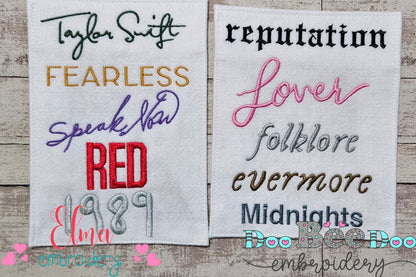 Taylor Swift
FEARLESS
Speak Now
RED
1989
Elma
embroidery
reputation
Lover
folklore
evermore
Midnights
Doo Bee Doo
embroidery